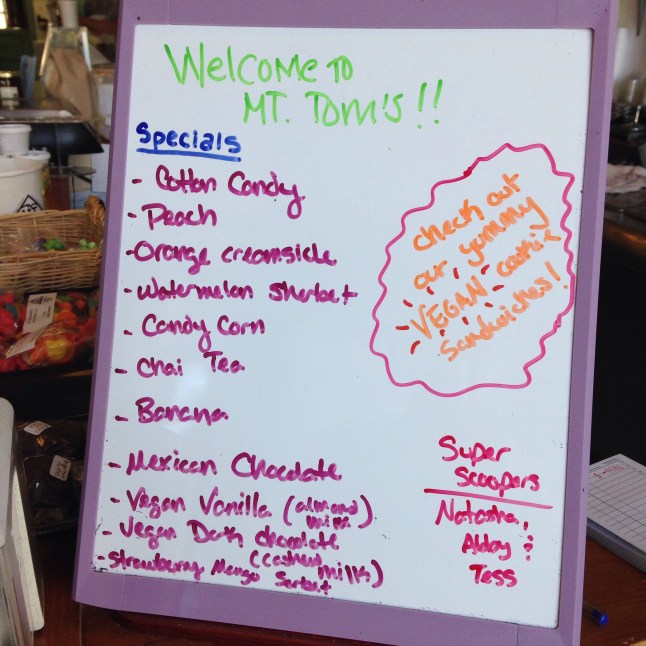 Welcome to
MT. Tom's!!
Specials
- Cotton Candy
- Peach
- Orange creamsicle
- Watermelon Sherbet
- Candy Corn
- Chai Tea
- Banana
- Mexican Chocolate
- Vegan Vanilla (almond milk)
- Vegan Dark chocolate
(cashew milk)
- Strawberry Mango Sorbet
check out
our yummy
VEGAN cookie
sandwiches!
Super
Scoopers
Natasha,
Abby &
Tess